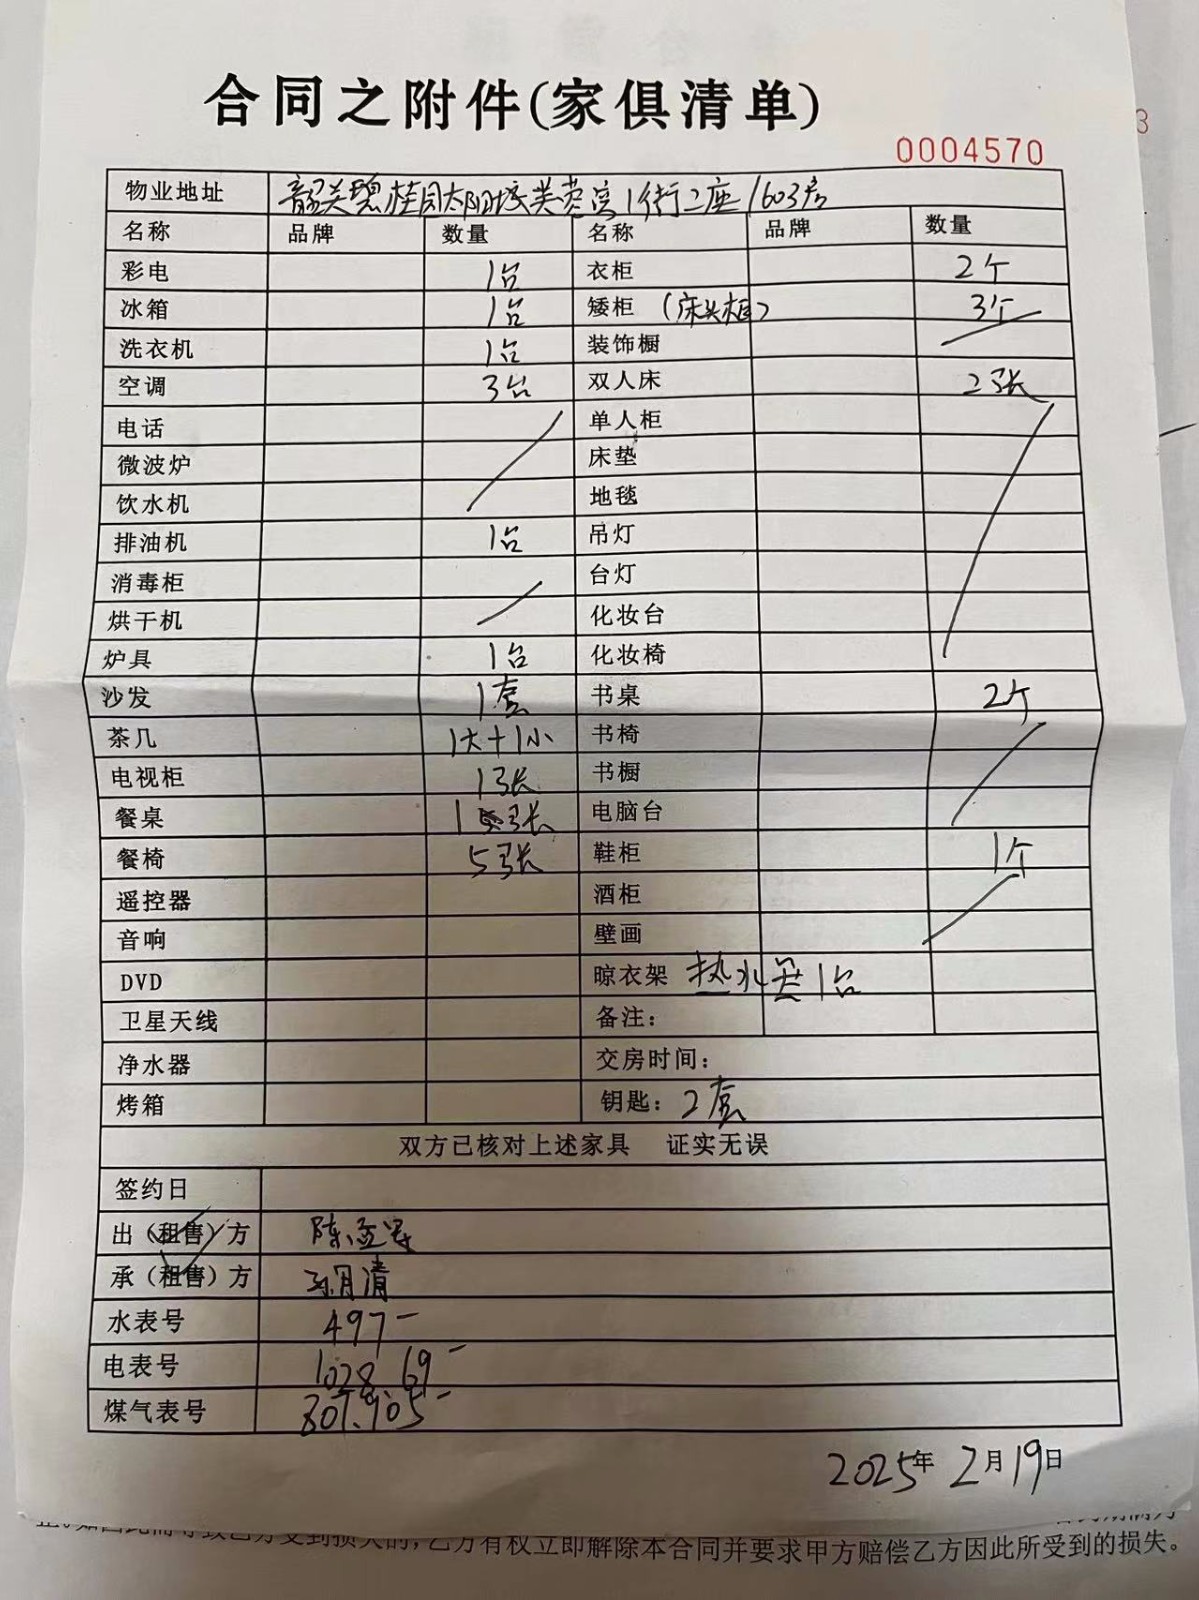 合同之附件(家俱清单)
0004570
物业地址 韶关碧桂园太阳城芙蓉湾1街2座1603房
名称 品牌 数量 名称 品牌 数量
彩电 1台 衣柜 2个
冰箱 1台 矮柜 (床头柜) 3个
洗衣机 1台 装饰橱
空调 3台 双人床 2张
电话 单人柜
微波炉 床垫
饮水机 地毯
排油机 1台 吊灯
消毒柜 台灯
烘干机 化妆台
炉具 1台 化妆椅
沙发 1套 书桌 2个
茶几 1大+1小 书椅
电视柜 1张 书橱
餐桌 1张 电脑台
餐椅 5张 鞋柜 1个
遥控器 酒柜
音响 壁画
DVD 晾衣架 热水器1台
卫星天线 备注:
净水器 交房时间:
烤箱 钥匙: 2套
双方已核对上述家具 证实无误
签约日
出(租售)方 陈
承(租售)方 月清
水表号 497
电表号 1028.69
煤气表号 807.905
2025年2月19日
乙方有权立即解除本合同并要求甲方赔偿乙方因此所受到的损失。